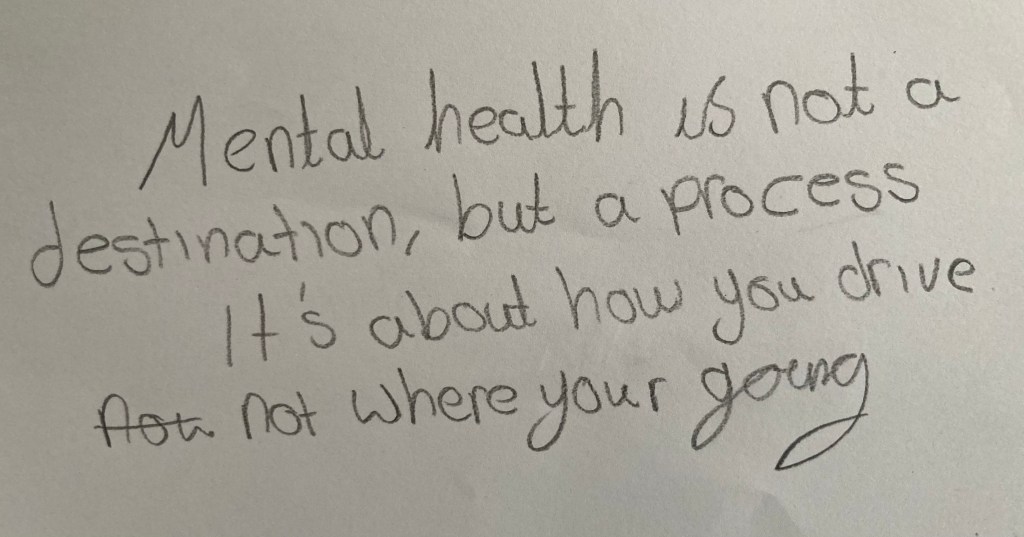 Mental health is not a
destination, but a process
It's about how you drive
not where your going